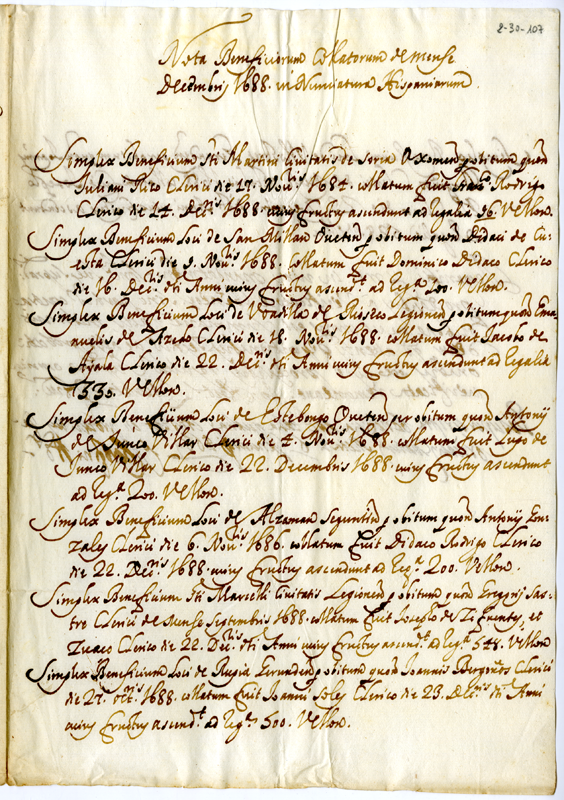 2-30-107
Nota Beneficiorum Collatorum de mense
Decembris 1688. in Nunciatura Hispaniarum.
Simplex Beneficium Sti Martini Civitatis de Soria Oxomen p obitum quon
Juliani Rico Clerici die 17. Novris 1684. collatum fuit Rodrigo
Clerico die 14. Decris 1688. cuius fructus ascendunt ad Regalia 96. Vellon.
Simplex Beneficium Loci de San Millan Oveten p obitum quon Didaci de Cu-
esta Clerici die 9. Novris 1688. collatum fuit Dominico Didaco Clerico
die 16. Decris dti Anni cuius fructus ascendt ad Rega 200. Vellon.
Simplex Beneficium Loci de Vobadilla de Rioseco Legionen p obitum quon Ema-
nuelis de Azedo Clerici die 18. Novris 1688. collatum fuit Jacobo de
Ayala Clerico die 22. Decris dti Anni cuius fructus ascendunt ad Regalia
1330. Vellon.
Simplex Beneficium Loci de Estebongo Oveten per obitum quon Antonij
de Junco Villar Clerici die 4. Novris 1688. collatum fuit Lupo de
Junco Villar Clerico die 22. Decembris 1688. cuius fructus ascendunt
ad Rega 200. Vellon.
Simplex Beneficium Loci de Alzaman Seguntin p obitum quon Antonij Gon-
zalez Clerici die 6. Novris 1686. collatum fuit Didaco Rodrigo Clerico
die 22. Decris 1688. cuius fructus ascendunt ad Rega 200. Vellon.
Simplex Beneficium Sti Marcelli Civitatis Legionen p obitum quon Gregorij Sas-
tre Clerici de Mense Septembris 1688. collatum fuit Josepho de Zifuentes, et
Clerico die 22. Decris dti Anni cuius fructus ascendt ad Rega 548. Vellon
Simplex Beneficium Loci de Rupia Gerunden p obitum quon Joannis Bergonos Clerici
die 27. octris 1688. collatum fuit Joanni Soley Clerico die 23. Decris dti Anni
cuius fructus ascendt ad Rega 500. Vellon.